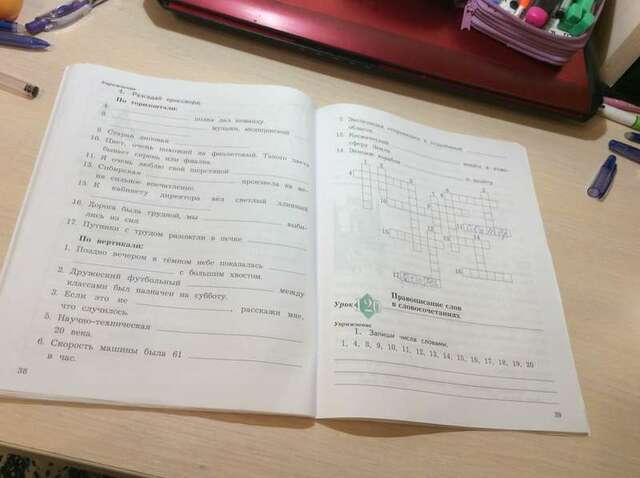 Упражнение
4. Разгадай кроссворд.
По горизонтали:
4. полка дал команду.
8. музыки, медицинский
9. Старая
10. Цвет, очень похожий на фиолетовый. Такого цвета
бывает сирень или фиалка.
11. Я очень люблю свой шерстяной
13. Сибирская произвела на ме-
ня сильное впечатление.
15. К кабинету директора вёл светлый длинный
16. Дорога была трудной, мы выби-
лись из сил
17. Путники с трудом разожгли в печке
По вертикали:
1. Поздно вечером в тёмном небе показалась
с большим хвостом.
2. Дружеский футбольный между
классами был назначен на субботу.
3. Если это не , расскажи мне,
что случилось.
5. Научно-техническая
20 века.
6. Скорость машины была 61
в час.
38
7. Экспедиция отправилась в отдалённый
области.
12. Космический
сферу Земли.
14. Экипаж корабля
к полёту
Урок 20
Правописание слов
в словосочетаниях
Упражнение
1. Запиши числа словами.
1, 4, 8, 9, 10, 11, 12, 13, 14, 15, 16, 17, 18, 19, 20
39